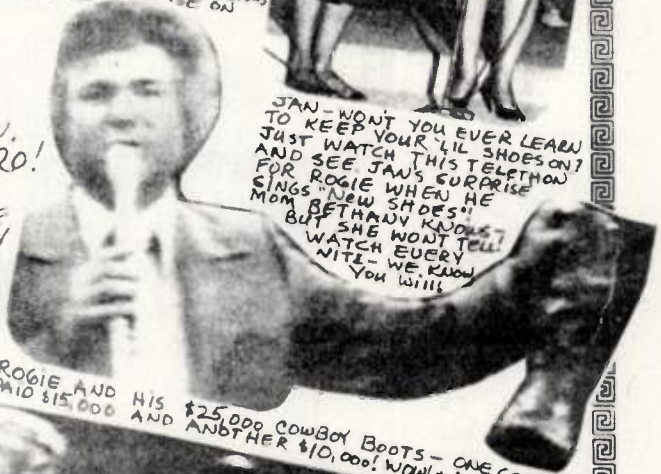 E ON
RO!
JAN-WON'T YOU EVER LEARN
TO KEEP YOUR LIL SHOES ON?
JUST WATCH THIS TELETHON
AND SEE JAN'S SURPRISE
FOR ROGIE WHEN HE
SINGS "NEW SHOES"!
MOM BETHANY KNOWS-
BUT SHE WONT TELL!
WATCH EVERY
NITE-WE KNOW
YOU WILL!
ROGIE AND HIS $25,000 COWBOY BOOTS - ONE
PAID $15,000 AND ANOTHER $10,000! WOW!